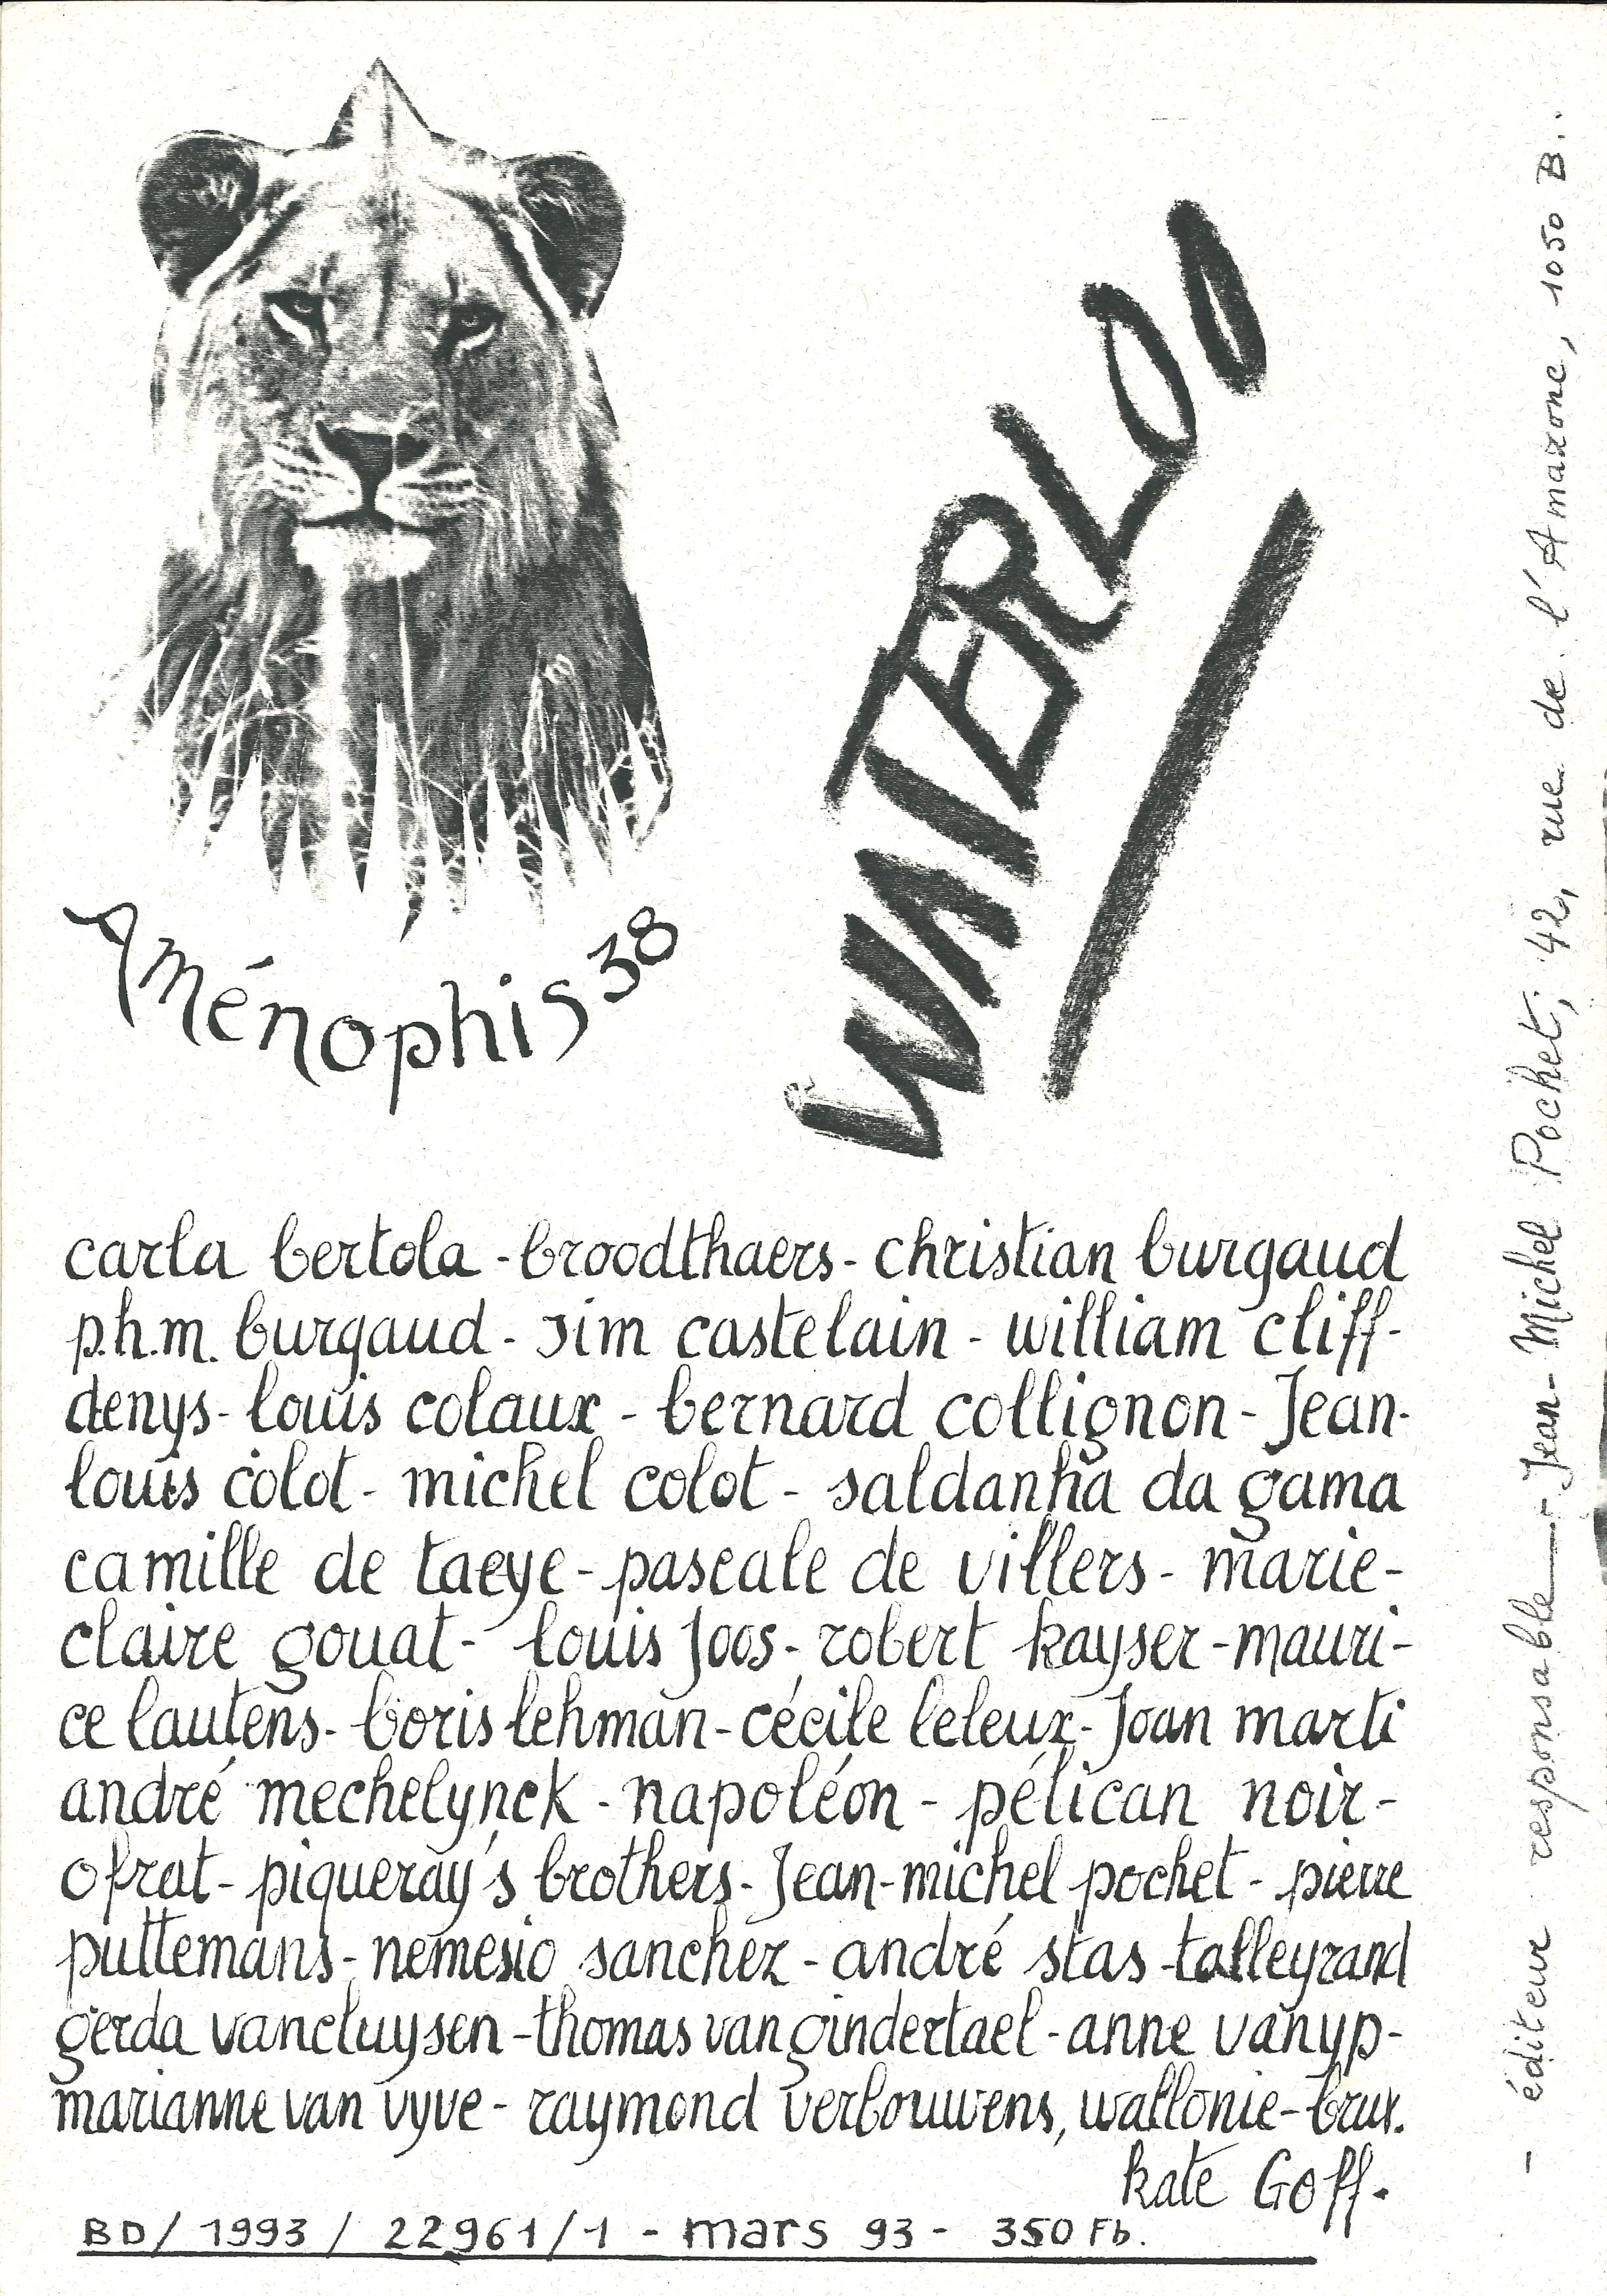 Aménophis 38
WATERLOO
carla bertola - broodthaers - christian burgaud
p.h.m. burgaud - jim castelain - william cliff -
denys-louis colaux - bernard collignon - Jean-
louis colot - michel colot - saldanha da gama
camille de taeye - pascale de villers - marie-
claire gouat - louis Joos - robert kayser - mauri-
ce lautens - boris lehman - cécile leleux - Joan marti
andré mechelynck - napoléon - pélican noir -
ofrat - piqueray's brothers - Jean-michel pochet - pierre
puttemans - nemesio sanchez - andré stas - talleyrand
gerda vancluysen - thomas van gindertael - anne vanyp -
marianne van vyve - raymond verbouwens, wallonie-brux.
kate Goff.
BD/ 1993 / 22961/1 - mars 93 - 350 Fb.
- éditeur responsable - Jean-Michel Pochet; 42, rue de l'Amazone, 1050 B..